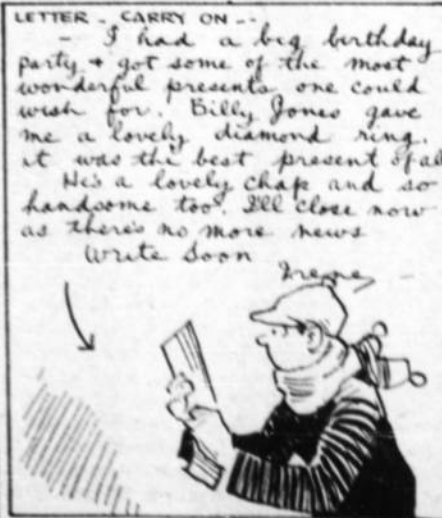 LETTER - CARRY ON - -
- I had a big birthday
party + got some of the most
wonderful presents one could
wish for. Billy Jones gave
me a lovely diamond ring.
it was the best present of al
He's a lovely chap and so
handsome too. I'll close now
as there's no more news
Write soon
Irene